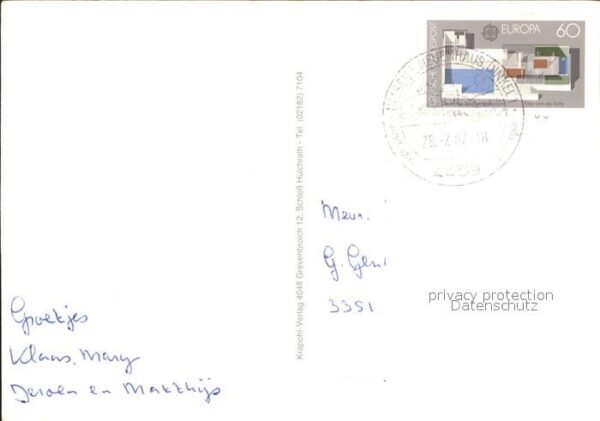 DEUTSCHE BUNDESPOST
EUROPA 60
28.-7.87-18
4459
Krapohl-Verlag 4048 Grevenbroich 12, Schloß Hülchrath - Tel. (02182) 7104
Mevr.
G.
3351
privacy protection
Datenschutz
Groetjes
Klaas, Mary
Jeroen en Matthijs